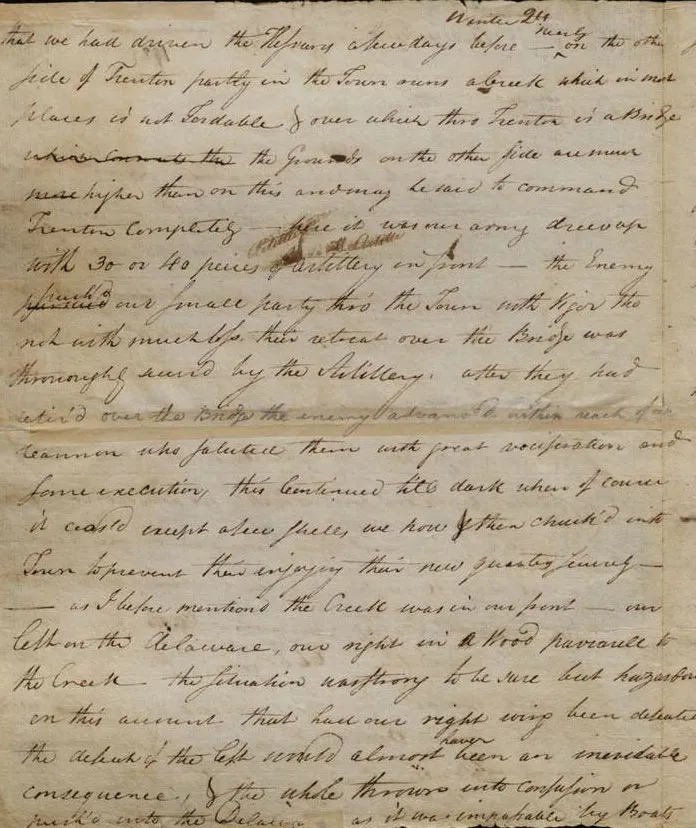 Winter Qu
that we had driven the Hessians a few days before — nearly on the other
side of Trenton partly in the Town runs a Creek which in most
places is not Fordable & over which thro Trenton is a Bridge
the Grounds on the other side are much
more higher than on this and may be said to command
Trenton Completely — here it was our army drew up
with 30 or 40 peices of Artillery in front — the Enemy
push'd our small party thro the Town with Vigor tho
not with much loss their retreat over the Bridge was
thoroughly secur'd by the Artillery. after they had
retir'd over the Bridge the enemy advanc'd within reach of our
Cannon who saluted them with great vociferation and
some execution, this Continued till dark when of course
it ceas'd except a few shells we now & then chuck'd into
Town to prevent their enjoying their new quarters
— as I before mention'd the Creek was in our front — our
left on the Delaware, our right in a Wood paraarell to
the Creek the situation was strong to be sure but hazardous
on this account that had our right wing been defeated
the defeat of the left would almost have been an inevidable
consequence, & the whole thrown into confusion or
push'd into the Delaware as it was impassable by Boats